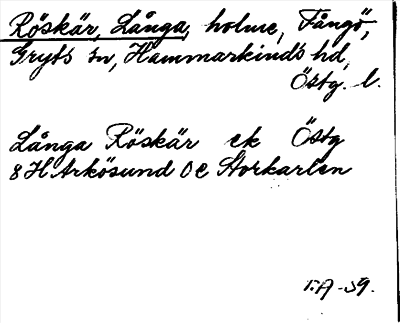 Röskär, Långa, holme, Fångö,
Gryts sn, Hammarkinds hd,
Östg. l.
Långa Röskär ek Östg
8H Arkösund 0e Storkarlen
T.A -59.